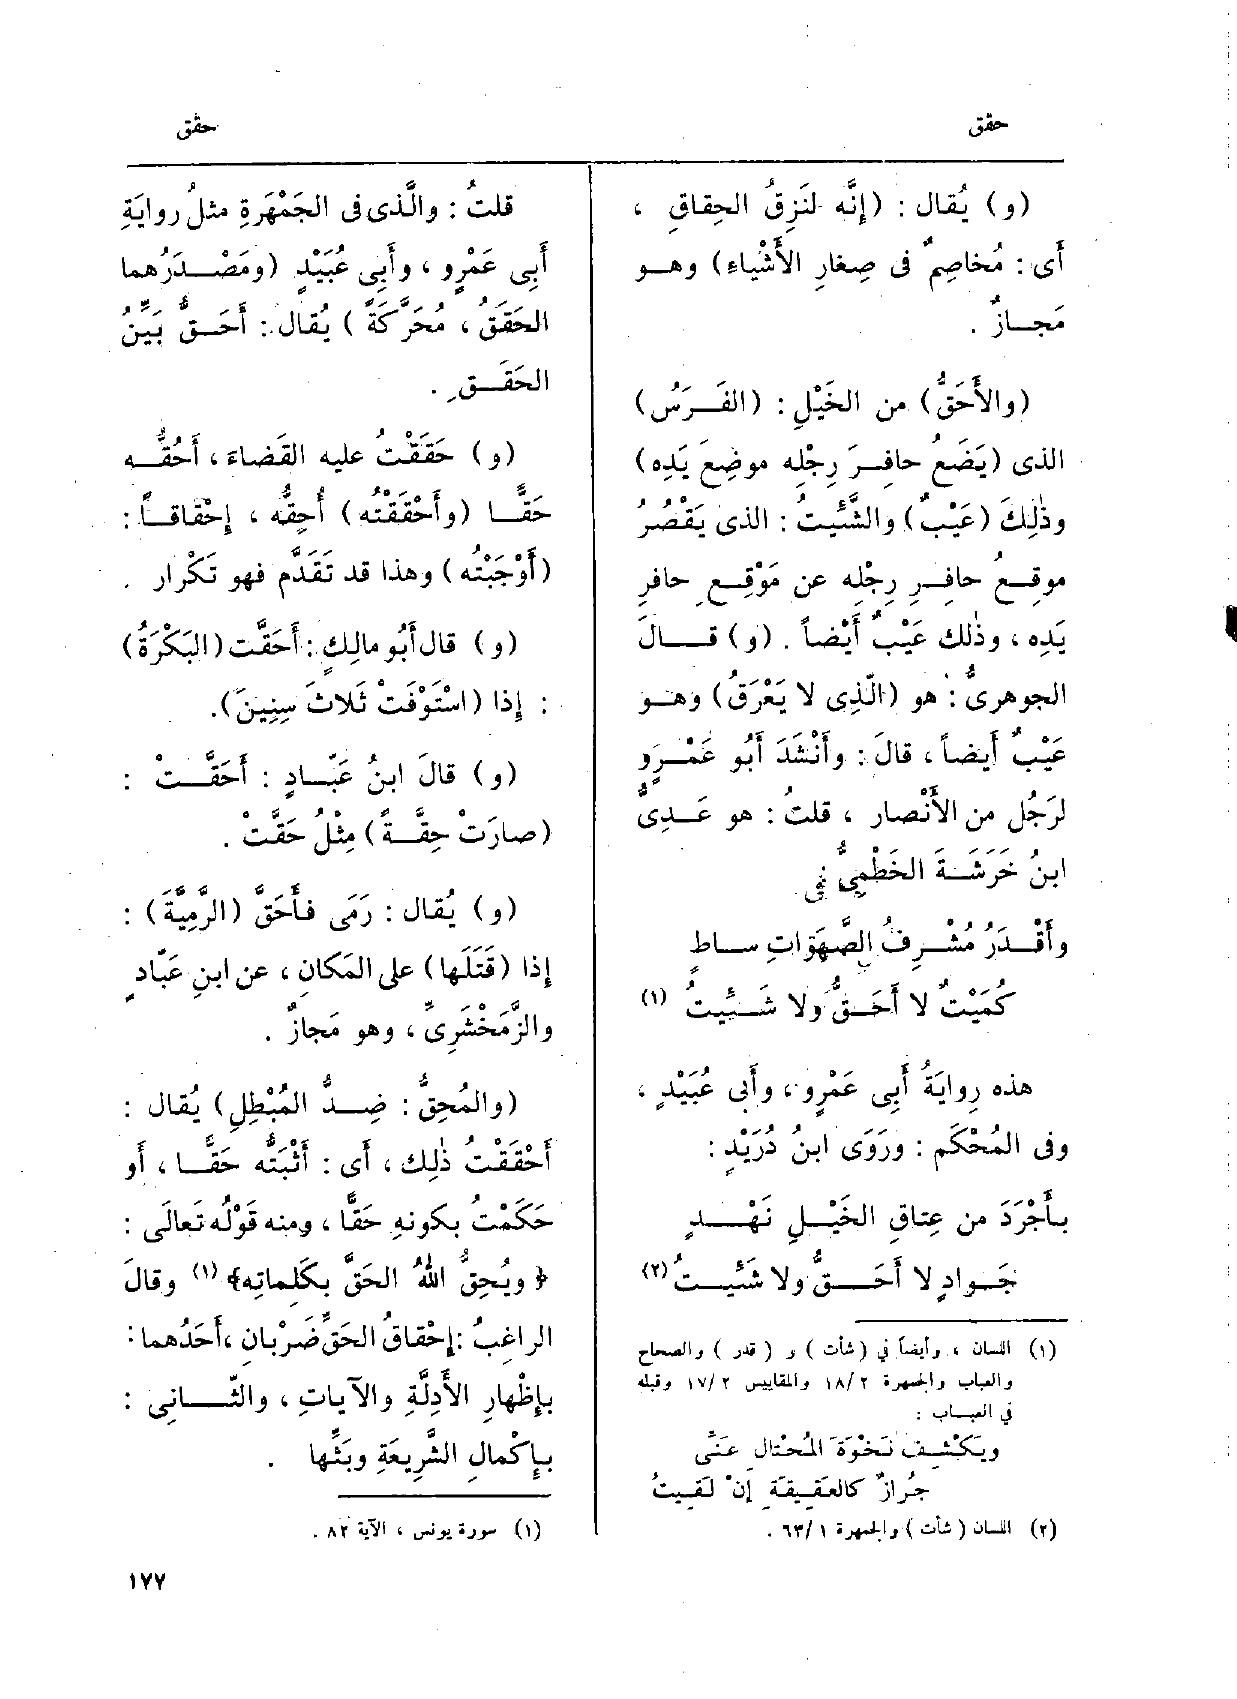 حقق
حقق
(و) يُقال : (إنَّه لنَزِقُ الحِقاقِ ،
أَى : مُخاصِمٌ فى صِغارِ الأَشْياء) وهــو
مَجــازٌ .
(والأَحَقُّ) من الخَيْلِ : (الفَــرَسُ)
الذى (يَضَع حافِــرَ رِجْلِه موضِعَ يَدِه)
وذٰلِكَ (عَيْبٌ) والشَّئِيتُ : الذى يَقْصُرُ
موقِــعُ حافِــرِ رِجْلِه عن مَوْقِــعِ حافِرِ
يَدِه ، وذٰلك عَيْبٌ أَيْضاً . (و) قــالَ
الجوهرىُّ : هو (الَّذِى لا يَعْرَقُ) وهــو
عَيْبٌ أَيضاً ، قالَ : وأَنْشَدَ أَبُو عَمْــرٍو
لرَجُلٍ من الأَنْصار ، قلتُ : هو عَــدِىُّ
ابنُ خَرَشَــةَ الخَطْمِىُّ :
وأَقْــدَرُ مُشْــرِفُ الصَّهَواتِ ســاطٍ
كُمَيْتٌ لا أَحَــقُّ ولا شَــئِيتُ (١)
هذه رِوايَةُ أَبِى عَمْرٍو ، وأَبى عُبَيْدٍ ،
وفى المُحْكَم : ورَوَى ابنُ دُرَيْدٍ :
بأَجْرَدَ من عِتاقِ الخَيْــلِ نَهْــدٍ
جَــوادٍ لا أَحَــقُّ ولا شَئِيــتُ (٢)
(١) اللسان ، وأيضاً في (شأت) و (قدر) والصحاح
والعباب والجمهرة ١٨/٢ والمقاييس ١٧/٢ وقبله
في العباب :
ويَكْشِف نَخْوَةَ المُخْتالِ عَنِّى
جُرازٌ كالعَقِيقَةِ إنْ لَقِيتُ
(٢) اللسان (شأت) والجمهرة ٦٣/١ .
قلتُ : والَّذى فى الجَمْهَرةِ مثلُ روايَةِ
أَبى عَمْرٍو ، وأَبِى عُبَيْدٍ (ومَصْــدَرُهما
الحَقَقُ ، مُحَرَّكَةً) يُقال : أَحَــقُّ بَيِّنُ
الحَقَــقِ .
(و) حَقَقْتُ عليه القَضاءَ ، أَحُقُّــه
حَقًّــا (وأَحْقَقْتُه) أُحِقُّه ، إحْقاقــاً :
(أَوْجَبْتُه) وهذا قد تَقَدَّم فهو تَكْرار .
(و) قال أَبُو مالِكٍ : أَحَقَّت (البَكْرَةُ)
: إذا (اسْتَوْفَتْ ثَلاثَ سِنِينَ).
(و) قالَ ابنُ عَبّــادٍ : أَحَقَّــتْ :
(صارَتْ حِقَّــةً) مِثْلُ حَقَّتْ .
(و) يُقال : رَمَى فأَحَقَّ (الرَّمِيَّةَ) :
إذا (قَتَلَها) على المَكان ، عن ابنِ عَبّادٍ
والزَّمَخْشَرِىِّ ، وهو مَجازٌ .
(والمُحِقُّ : ضِــدُّ المُبْطِلِ) يُقال :
أَحْقَقْتُ ذٰلِك ، أى : أَثْبَتُّه حَقًّــا ، أَو
حَكَمْتُ بكونِهِ حَقًّا ، ومنه قَوْلُه تَعالَى :
﴿ ويُحِقُّ اللهُ الحَقَّ بكَلِماتِه﴾ (١) وقالَ
الراغِبُ : إحْقاقُ الحَقِّ ضَرْبان ، أَحَدُهما :
بإِظْهارِ الأَدِلَّةِ والآياتِ ، والثّــانِى :
بإِكْمالِ الشَّرِيعَةِ وبَثِّها .
(١) سورة يونس ، الآية ٨٢ .
١٧٧